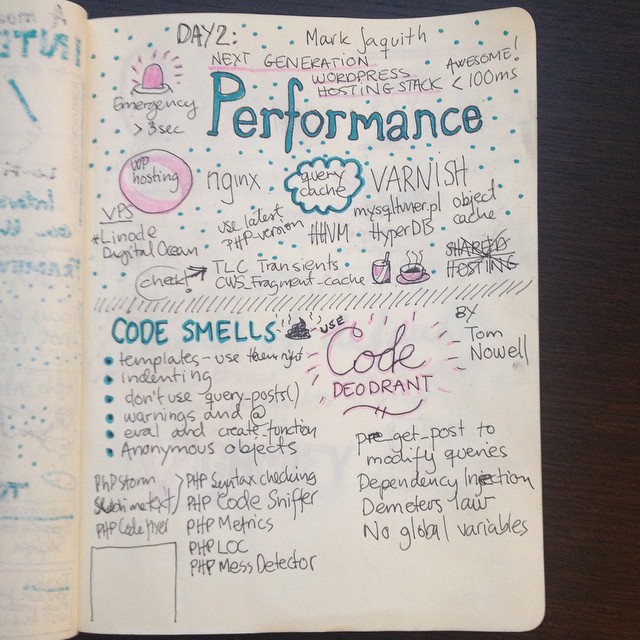 DAY2:
Mark Jaquith
NEXT GENERATION
WORDPRESS
HOSTING STACK
AWESOME!
< 100ms
Emergency
> 3sec
Performance
WP
hosting
nginx
query
cache
VARNISH
VPS
*Linode
Digital Ocean
use latest
PHP-version
HHVM
mysqltuner.pl
HyperDB
object
cache
SHARED
HOSTING
check!
TLC Transients
CWS_Fragment-cache
CODE SMELLS
USE
Code
DEODRANT
BY
Tom
Nowell
templates - use
indenting
don't use -query-posts()
warnings and @
eval and create_function
Anonymous objects
PhPstorm
Sublimetext
PHP Code fixer
PHP Syntax checking
PHP Code Sniffer
PHP Metrics
PHP LOC
PHP Mess Detector
pre-get-post to
modify queries
Dependency Injection
Demeters law
No global variables